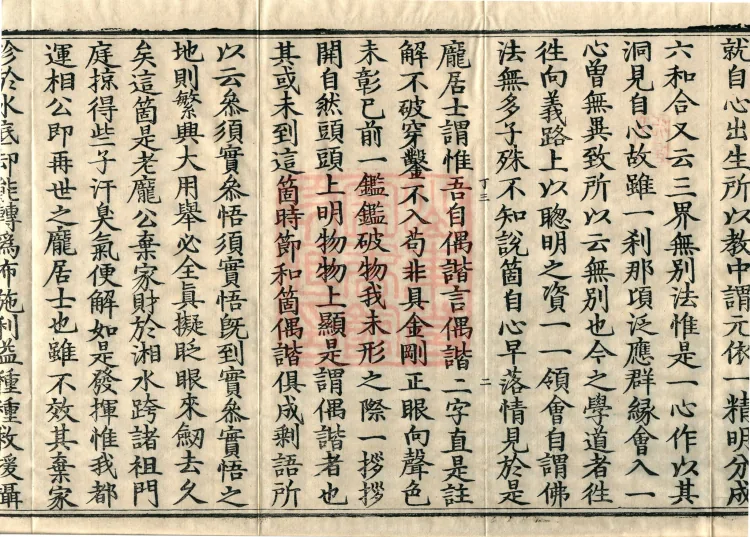 就自心出生所以教中謂元依一精明分成
六和合又云三界無別法惟是一心作以其
洞見自心故雖一刹那頃泛應群緣會入一
心曽無異致所以云無別也今之學道者徃
徃向義路上以聦明之資一一領會自謂佛
法無多子殊不知說箇自心早落情見於是
丁三 二
龐居士謂惟吾自偶諧言偶諧二字直是註
解不破穿鑿不入苟非具金剛正眼向聲色
未彰已前一鑑鑑破物我未形之際一拶拶
開自然頭頭上明物物上顯是謂偶諧者也
其或未到這箇時節和箇偶諧俱成剩語所
以云叅須實叅悟須實悟旣到實叅實悟之
地則繁興大用舉必全眞擬眨眼來劒去久
矣這箇是老龐公棄家財於湘水跨諸祖門
庭掠得些子汗臭氣便解如是發揮惟我都
運相公即再世之龐居士也雖不效其棄家
珍於水底却能轉爲布施利益種種救援